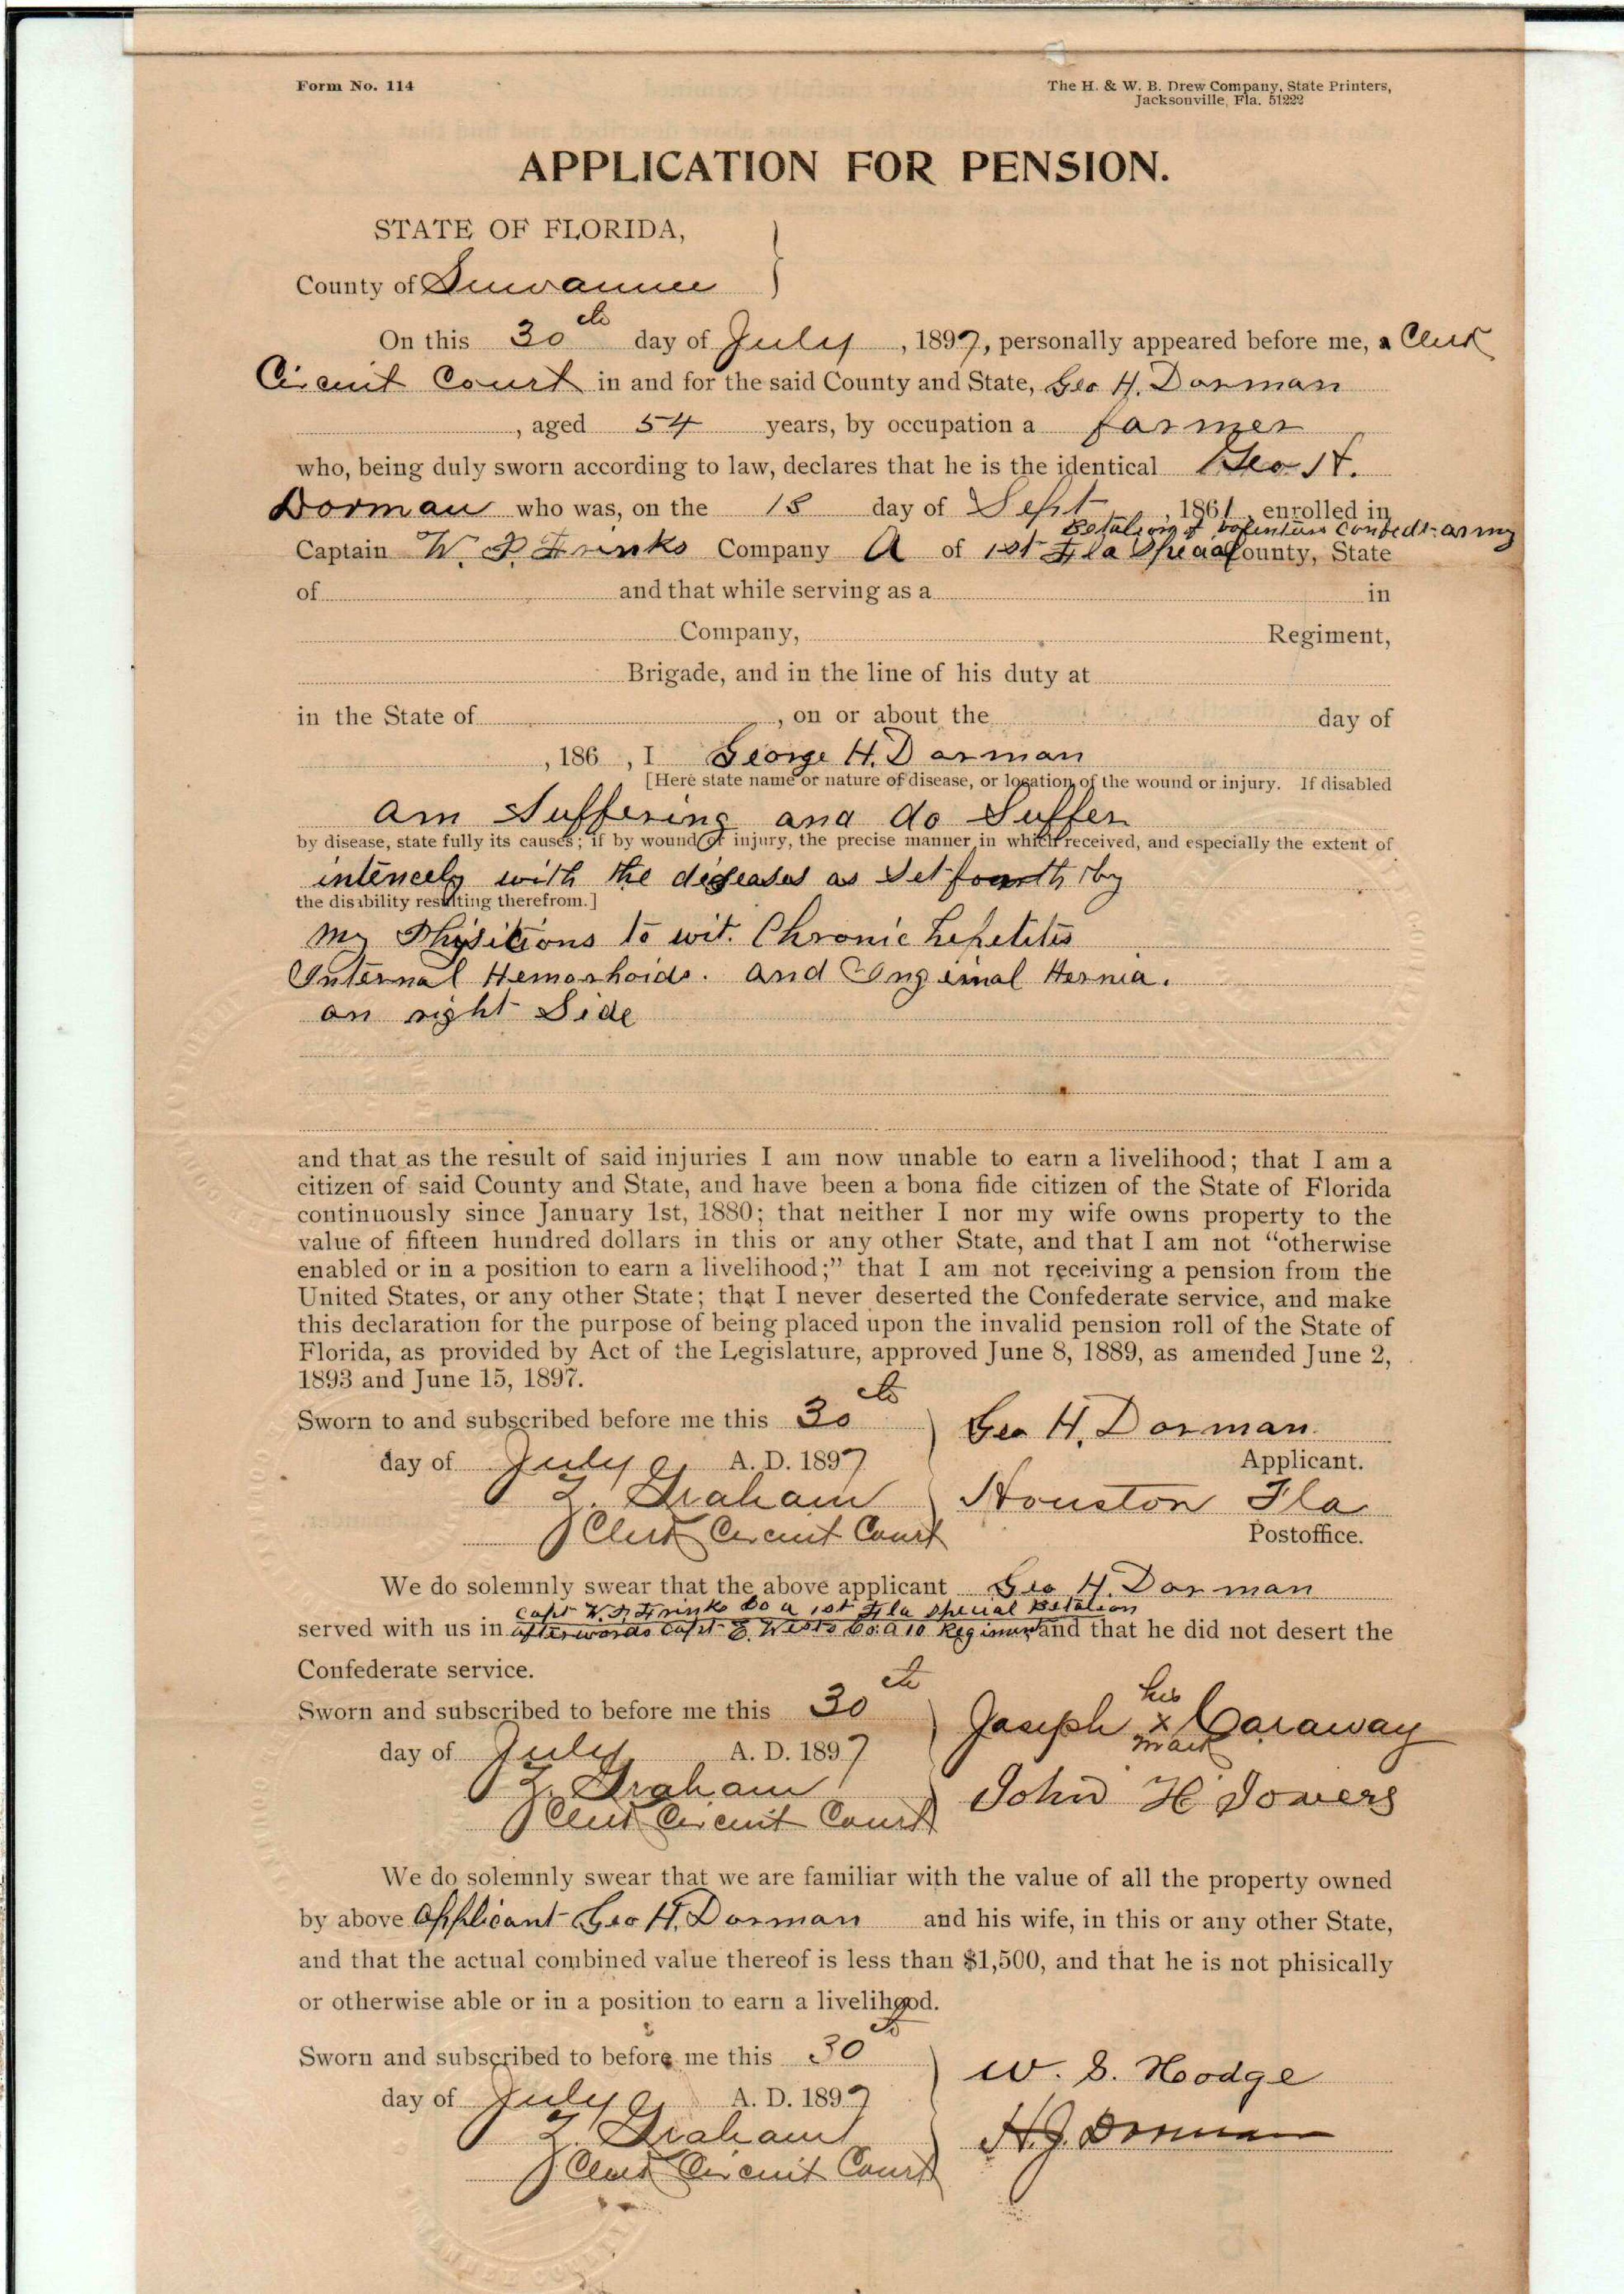 Form No. 114
The H. & W. B. Drew Company, State Printers,
Jacksonville, Fla. 51222
APPLICATION FOR PENSION.
STATE OF FLORIDA,
County of Suwannee
On this 30th day of July, 1897, personally appeared before me, a Clerk
Circuit Court in and for the said County and State, Geo H. Dorman
, aged 54 years, by occupation a farmer
who, being duly sworn according to law, declares that he is the identical Geo. H.
Dorman who was, on the 18 day of Sept, 1861, enrolled in
Betalion of volentens Confedt. army
Captain W. P. Frinks Company A of 1st Fla Special County, State
of and that while serving as a in
Company, Regiment,
Brigade, and in the line of his duty at
in the State of , on or about the day of
, 186 , I George H. Dorman
[Here state name or nature of disease, or location of the wound or injury. If disabled
am Suffering and do Suffer
by disease, state fully its causes; if by wound or injury, the precise manner in which received, and especially the extent of
intencely with the diseases as Set fourth by
the disability resulting therefrom.]
my Phisitions to wit. Chronic hepetites
Internal Hemorhoids. and Inginal Hernia.
on right Side
and that as the result of said injuries I am now unable to earn a livelihood; that I am a
citizen of said County and State, and have been a bona fide citizen of the State of Florida
continuously since January 1st, 1880; that neither I nor my wife owns property to the
value of fifteen hundred dollars in this or any other State, and that I am not “otherwise
enabled or in a position to earn a livelihood;” that I am not receiving a pension from the
United States, or any other State; that I never deserted the Confederate service, and make
this declaration for the purpose of being placed upon the invalid pension roll of the State of
Florida, as provided by Act of the Legislature, approved June 8, 1889, as amended June 2,
1893 and June 15, 1897.
Sworn to and subscribed before me this 30th
Geo H. Dorman.
day of July A. D. 1897
Applicant.
Graham
Houston Fla
Clerk Circuit Court
Postoffice.
We do solemnly swear that the above applicant Geo H. Dorman
Capt W. P. Frinks Co a 1st Fla Special Betalion
served with us in afterwords Capt E. Wests Co. a 10 Regiment and that he did not desert the
Confederate service.
Sworn and subscribed to before me this 30th
Joseph his x mark Caraway
day of July A. D. 1897
Graham
John H Jowers
Clerk Circuit Court
We do solemnly swear that we are familiar with the value of all the property owned
by above applicant Geo H. Dorman and his wife, in this or any other State,
and that the actual combined value thereof is less than $1,500, and that he is not phisically
or otherwise able or in a position to earn a livelihood.
Sworn and subscribed to before me this 30th
W. S. Hodge
day of July A. D. 1897
Graham
H. J. Dorman
Clerk Circuit Court